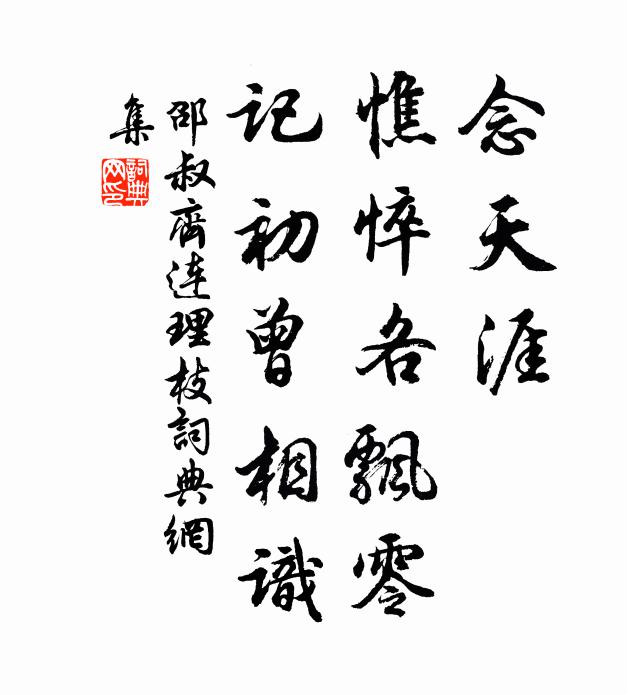 念天涯
憔悴各飄零
記初曾相識
邵叔齊连理枝詞典網
集
詞典
网印